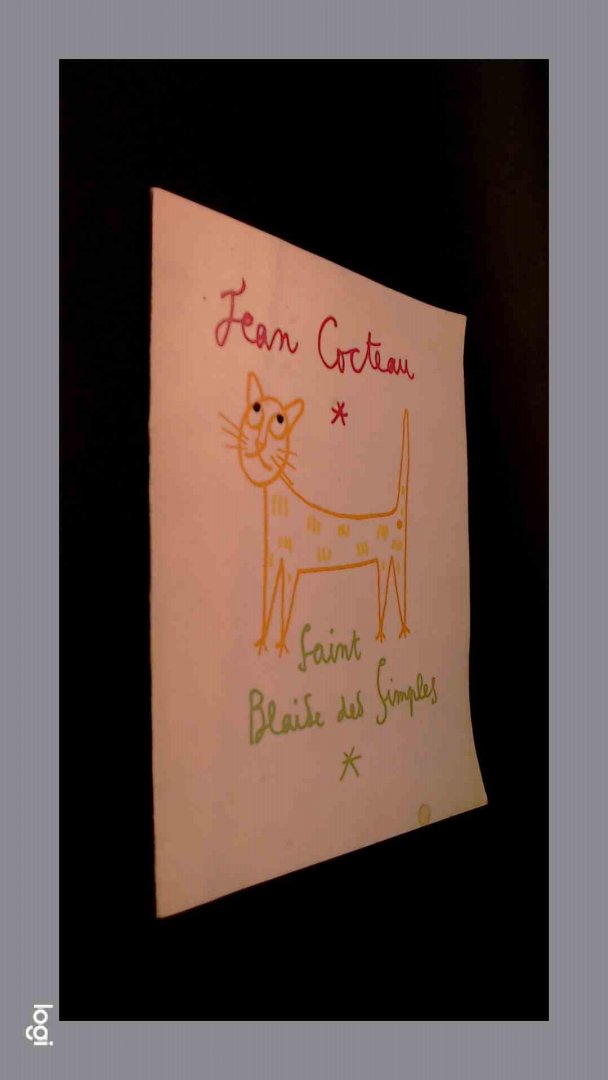 Jean Cocteau
*
Saint
Blaise des Simples
*
logi